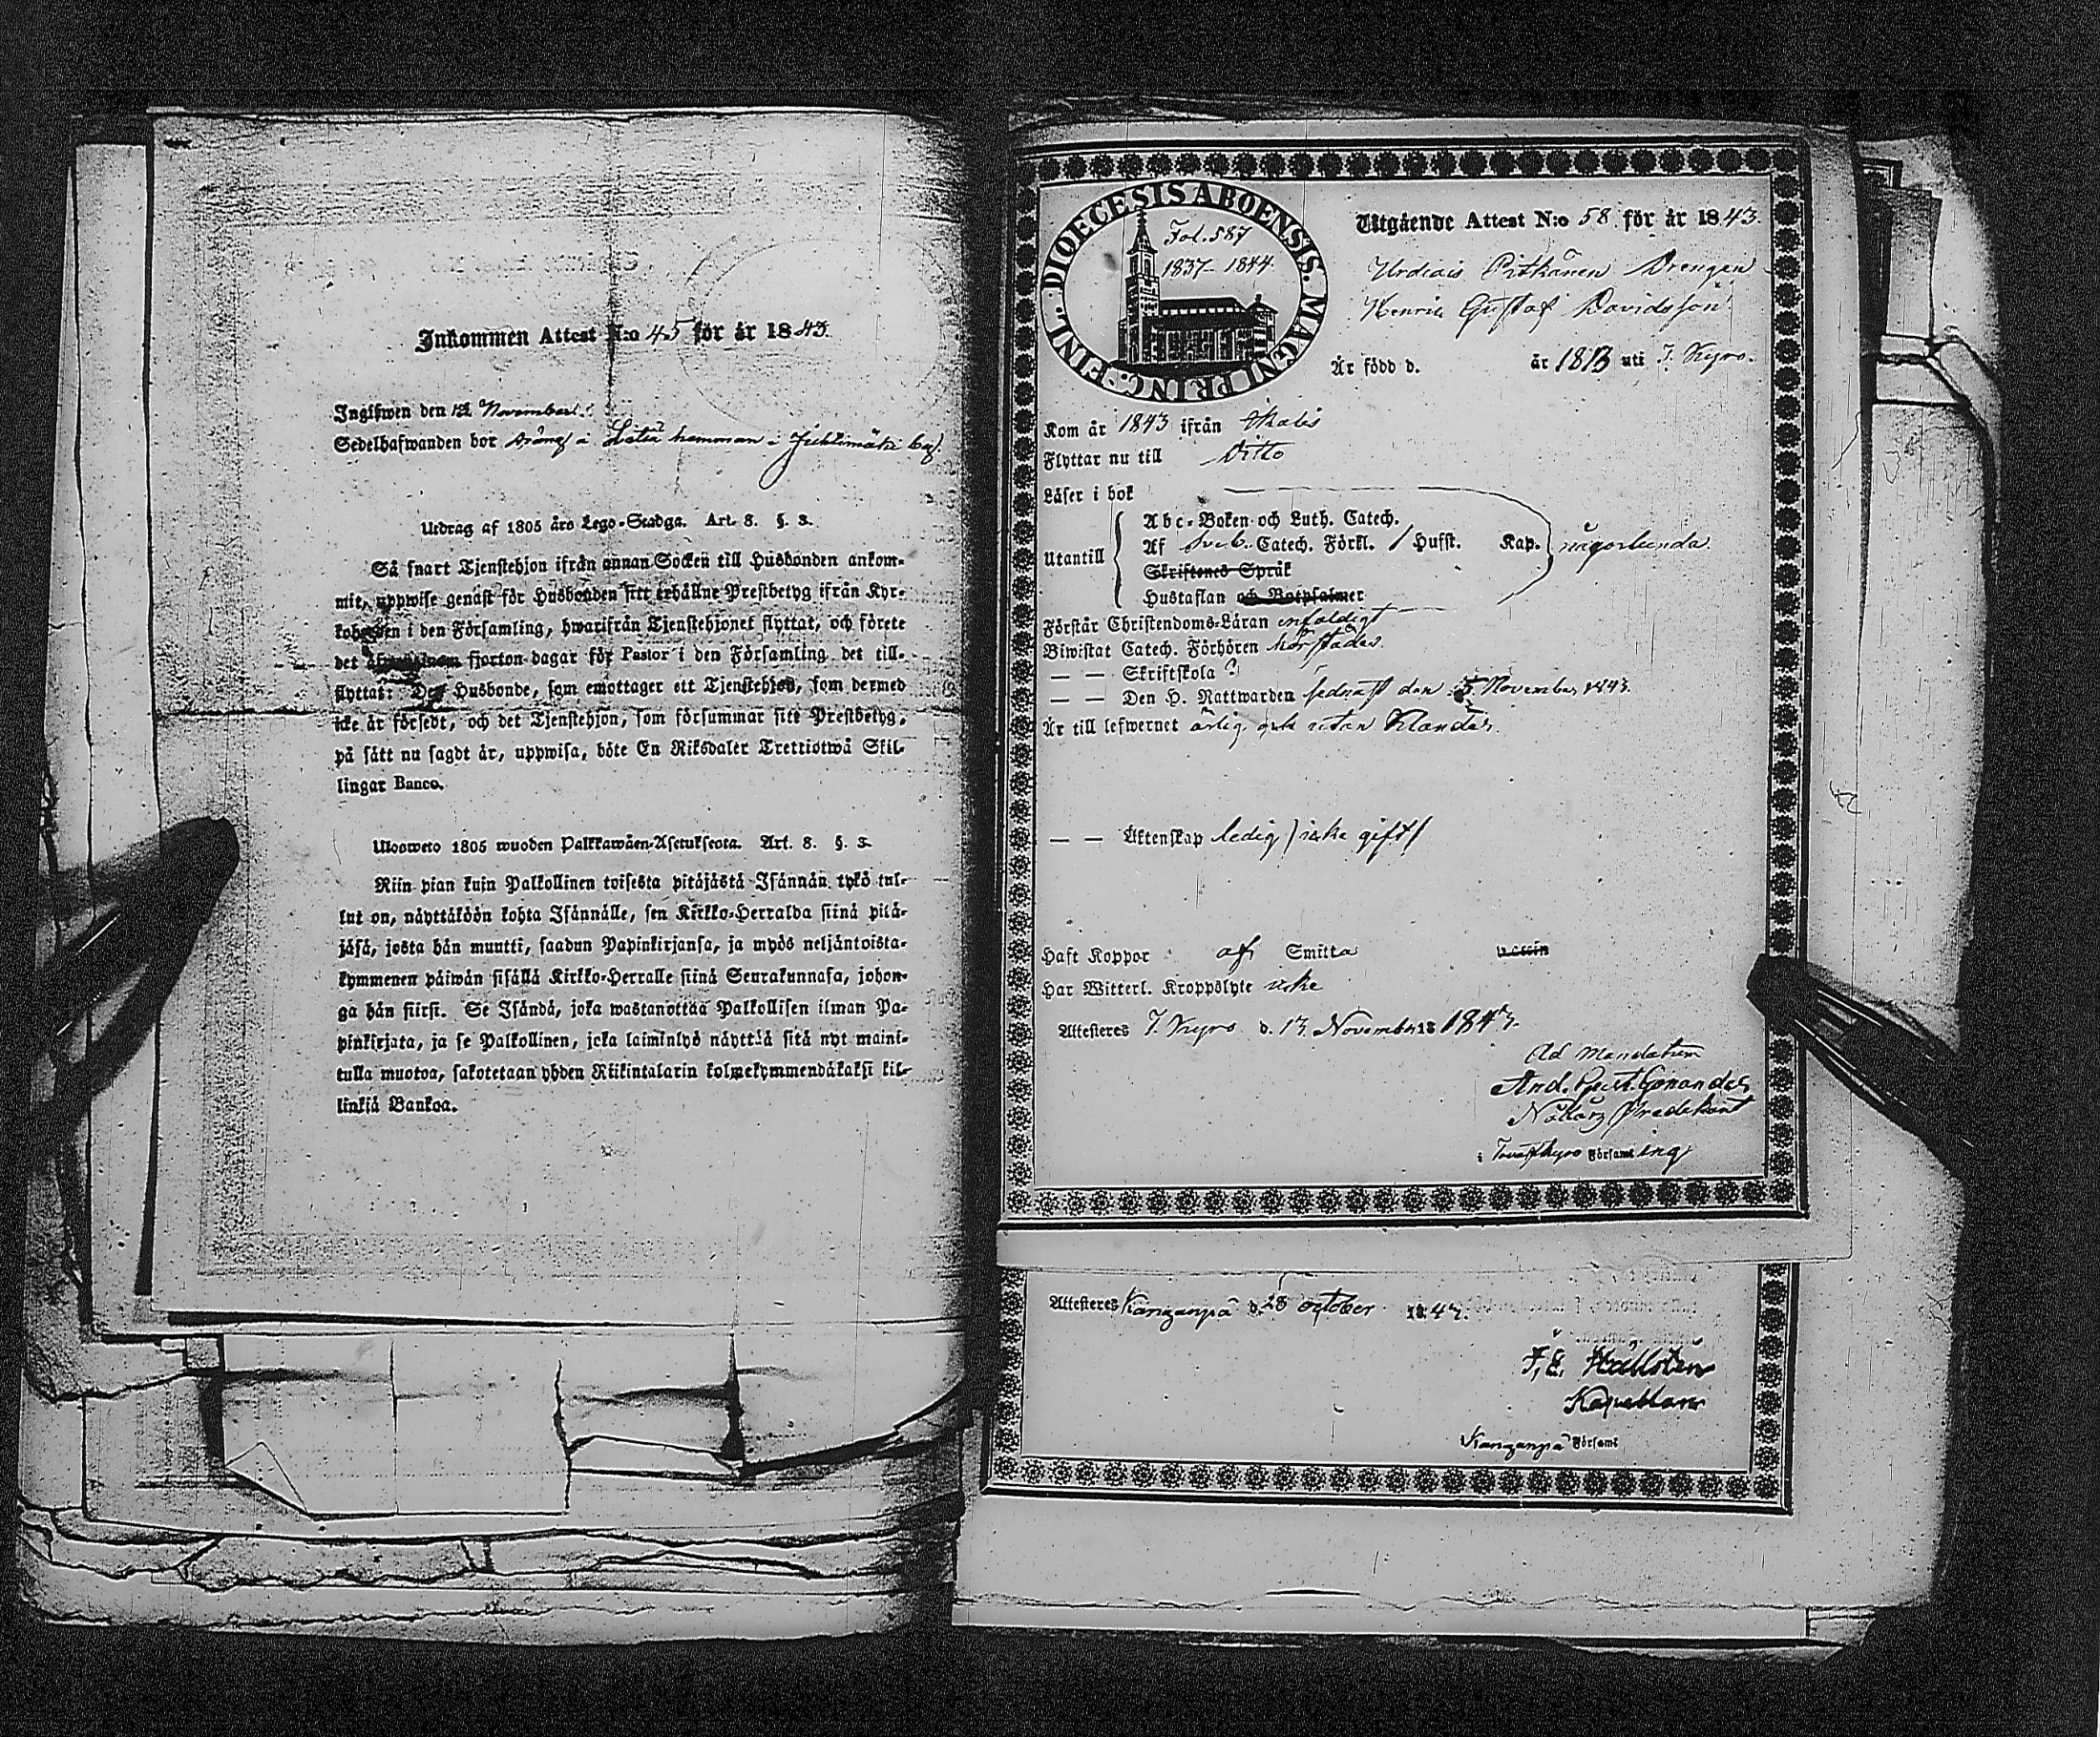 Inkommen Attest N:o 45 för år 1843.
Ingifwen den November
Sedelhafwanden bor i hemman i by.
Utdrag af 1805 års Lego-Stadga. Art. 8. §. 3.
Så snart Tjenstehjon ifrån annan Socken till Husbonden ankom-
mit, uppwise genast för Husbonden sitt erhållne Prestbetyg ifrån Kyr-
koherden i den Församling, hwarifrån Tjenstehjonet flyttat, och förete
det fjorton dagar för Pastor i den Församling det till-
flyttat: Den Husbonde, som emottager ett Tjenstehjon, som dermed
icke är försedt, och det Tjenstehjon, som försummar sitt Prestbetyg,
på sätt nu sagdt är, uppwisa, böte En Riksdaler Trettiotwå Skil-
lingar Banco.
Ulosweto 1805 wuoden Palkkawäen-Asetuksesta. Art. 8. §. 3.
Niin pian kuin Palkollinen toisesta pitäjästä Isännän tykö tul-
lut on, näyttäköön kohta Isännälle, sen Kirkko-Herralda siinä pitä-
jäsä, josta hän muutti, saadun Papinkirjansa, ja myös neljäntoista-
kymmenen päiwän sisällä Kirkko-Herralle siinä Seurakunnasa, johon-
ga hän siirsi. Se Isändä, joka wastanottaa Palkollisen ilman Pa-
pinkirjata, ja se Palkollinen, joka laiminlyö näyttää sitä nyt maini-
tulla muotoa, sakotetaan yhden Riikintalarin kolmekymmendäkaksi kil-
linkiä Bankoa.
DIOECESIS ABOENSIS. MAGNI PRINC. FINL.
Fol. 587
1837-1844.
Utgående Attest N:o 58 för år 1843.
Pitkänen Drengen
Henric Gustaf Davidsson
Är född d. år 1813 uti T. Kyro.
Kom år 1843 ifrån Ikalis
Flyttar nu till Ditto
Läser i bok
Utantill
Abc-Boken och Luth. Catech.
Af Sveb. Catech. Förkl. / Hufst. Kap. någorlunda.
Skriftenes Språk
Hustaflan och Botpsalmer
Förstår Christendoms-Läran enfaldigt
Biwistat Catech. Förhören härstädes.
— — Skriftskola ?
— — Den H. Nattwarden sednast den 5 November 1843.
Är till lefwernet ärlig och utan klander.
— — Äktenskap ledig / icke gift /
Haft Koppor af Smitta Vaccin
Har Witterl. Kroppslyte icke
Attesteres T. Kyro d. 13 November 18 1843.
Ad Mandatum
And. Gust.
Predikant
i Tavastkyro Församling
Attesteres Kanganpä d. 28 october 1843.
F. E. Hällsten
Kapellan
Kanganpä Församl